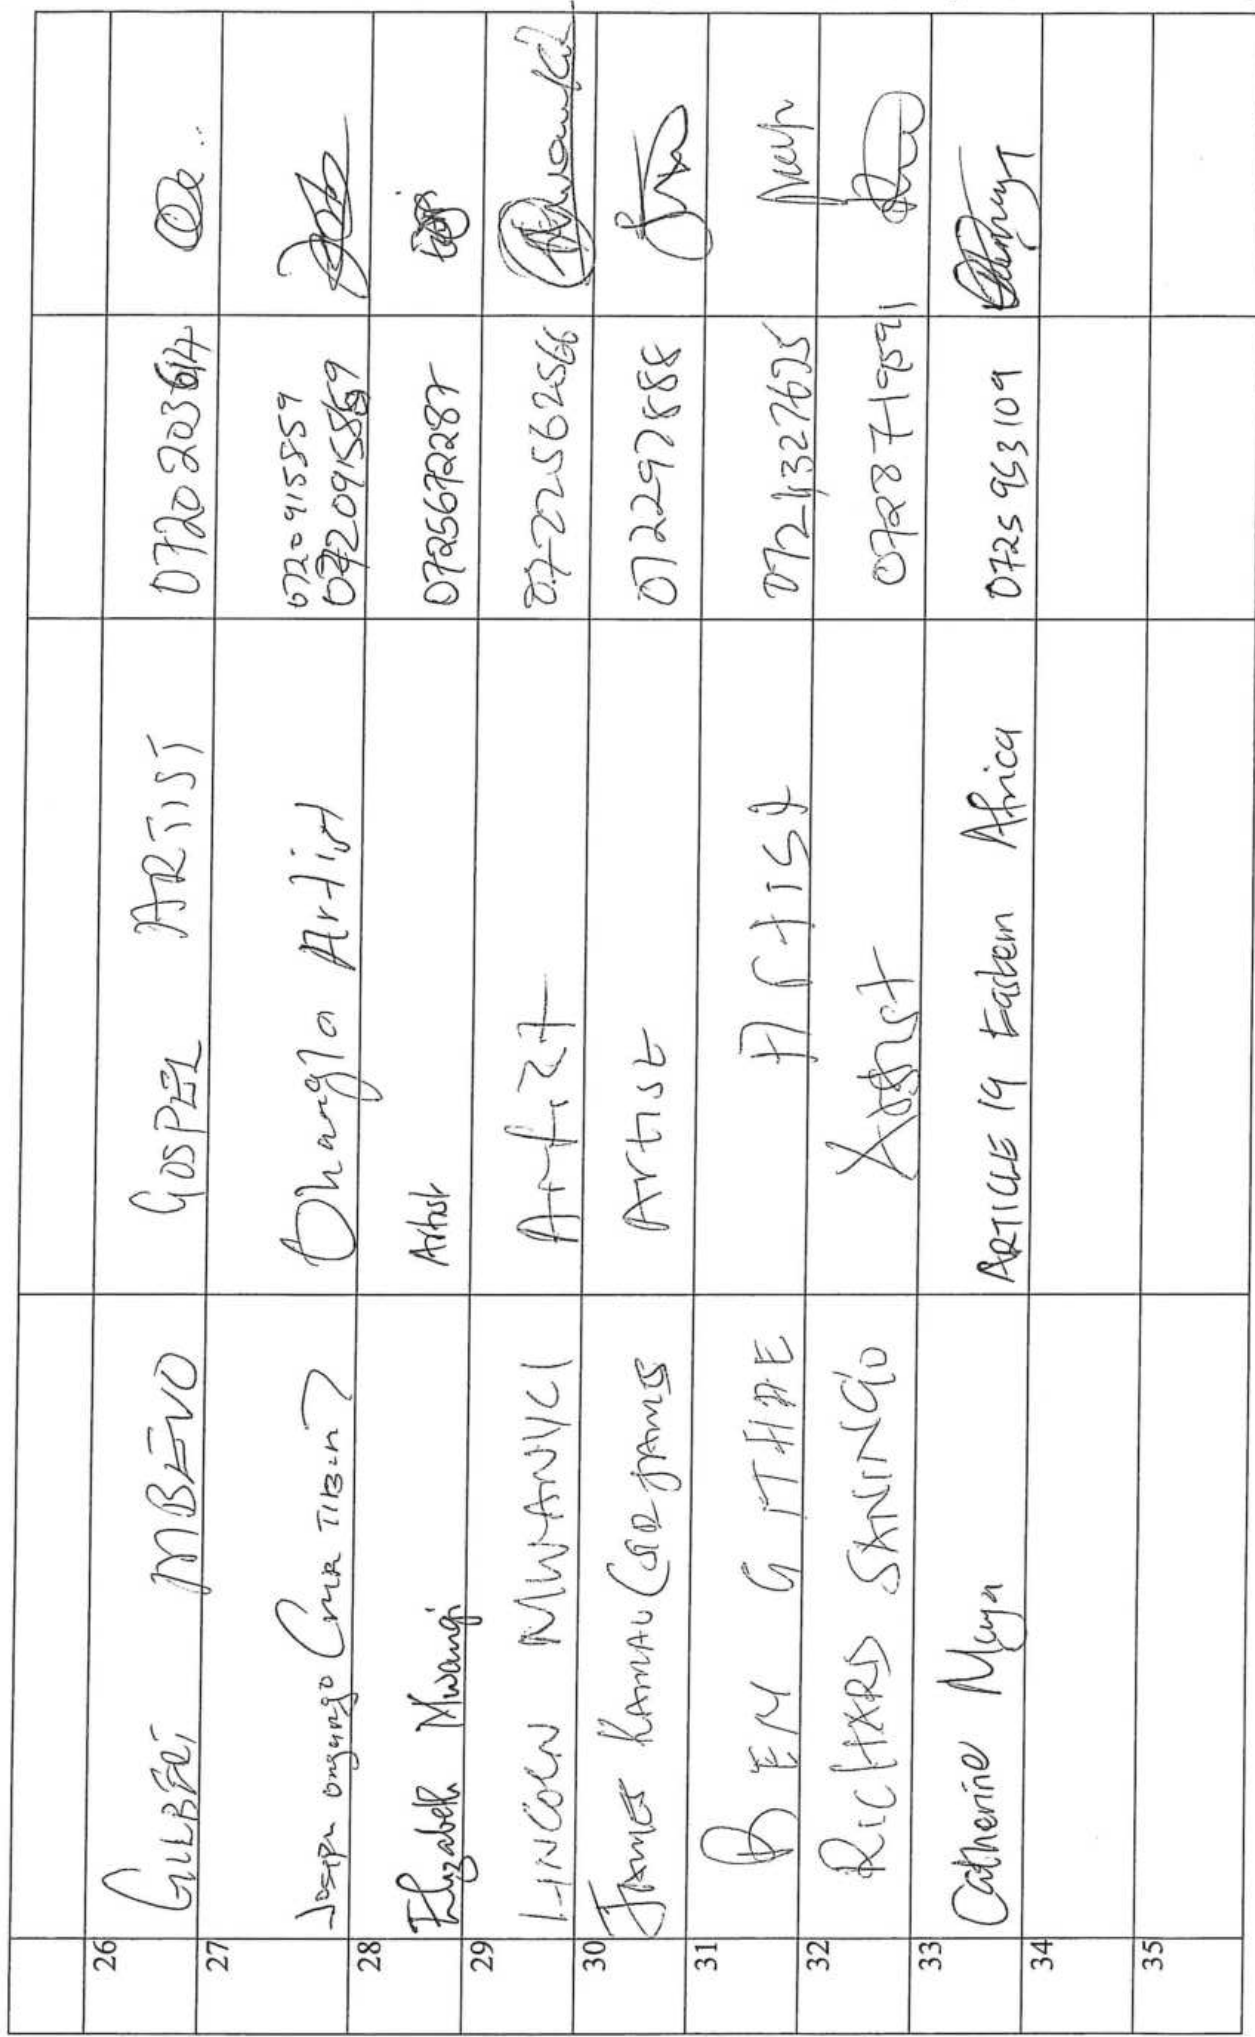 26 GILBERT MBEVO GOSPEL ARTIST
0720203614
27 Joseph Ongungo Ohangla Artist
0720915859
0720915859
28 Elizabeth Mwangi Artist 0725672287
29 LINCOLN MWANYCI Artist 0722562566
30 JAMES KAMAU (SIR JAMES Artist 072297888
31 BEM GITHAE Artist 07214327625
32 RICHARD SANINGO Artist 0728719591
33 Catherine Muya ARTICLE 19 Eastern Africa 0725953109
34
35